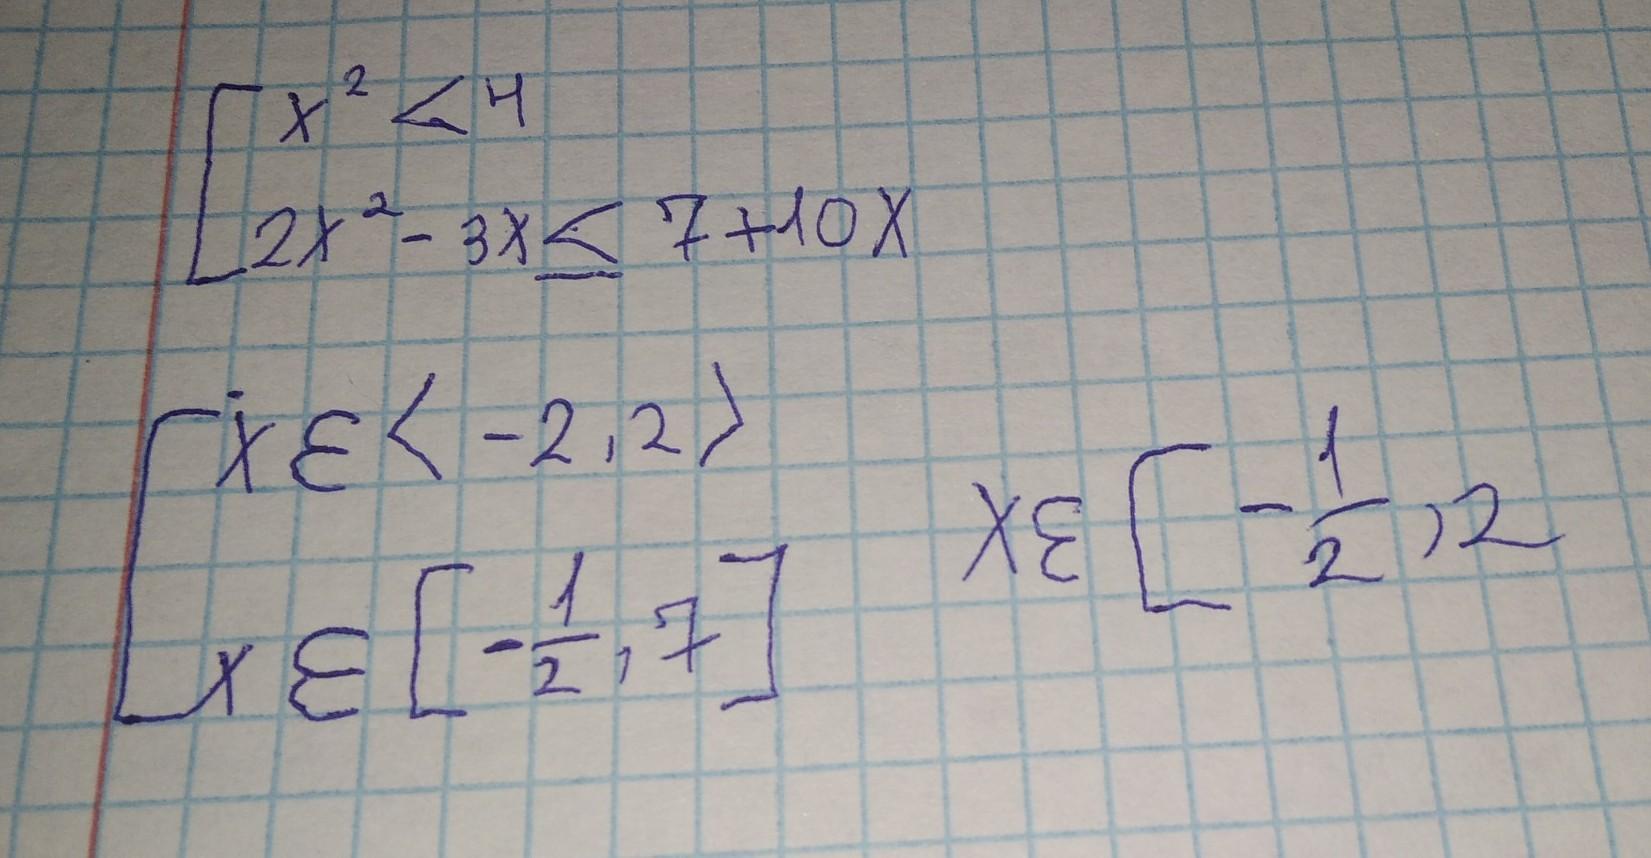 [ x² < 4
2x² - 3x ≤ 7 + 10x
[ x ε ⟨ -2, 2 ⟩
x ε [ -1/2, 7 ]
x ε [ -1/2, 2